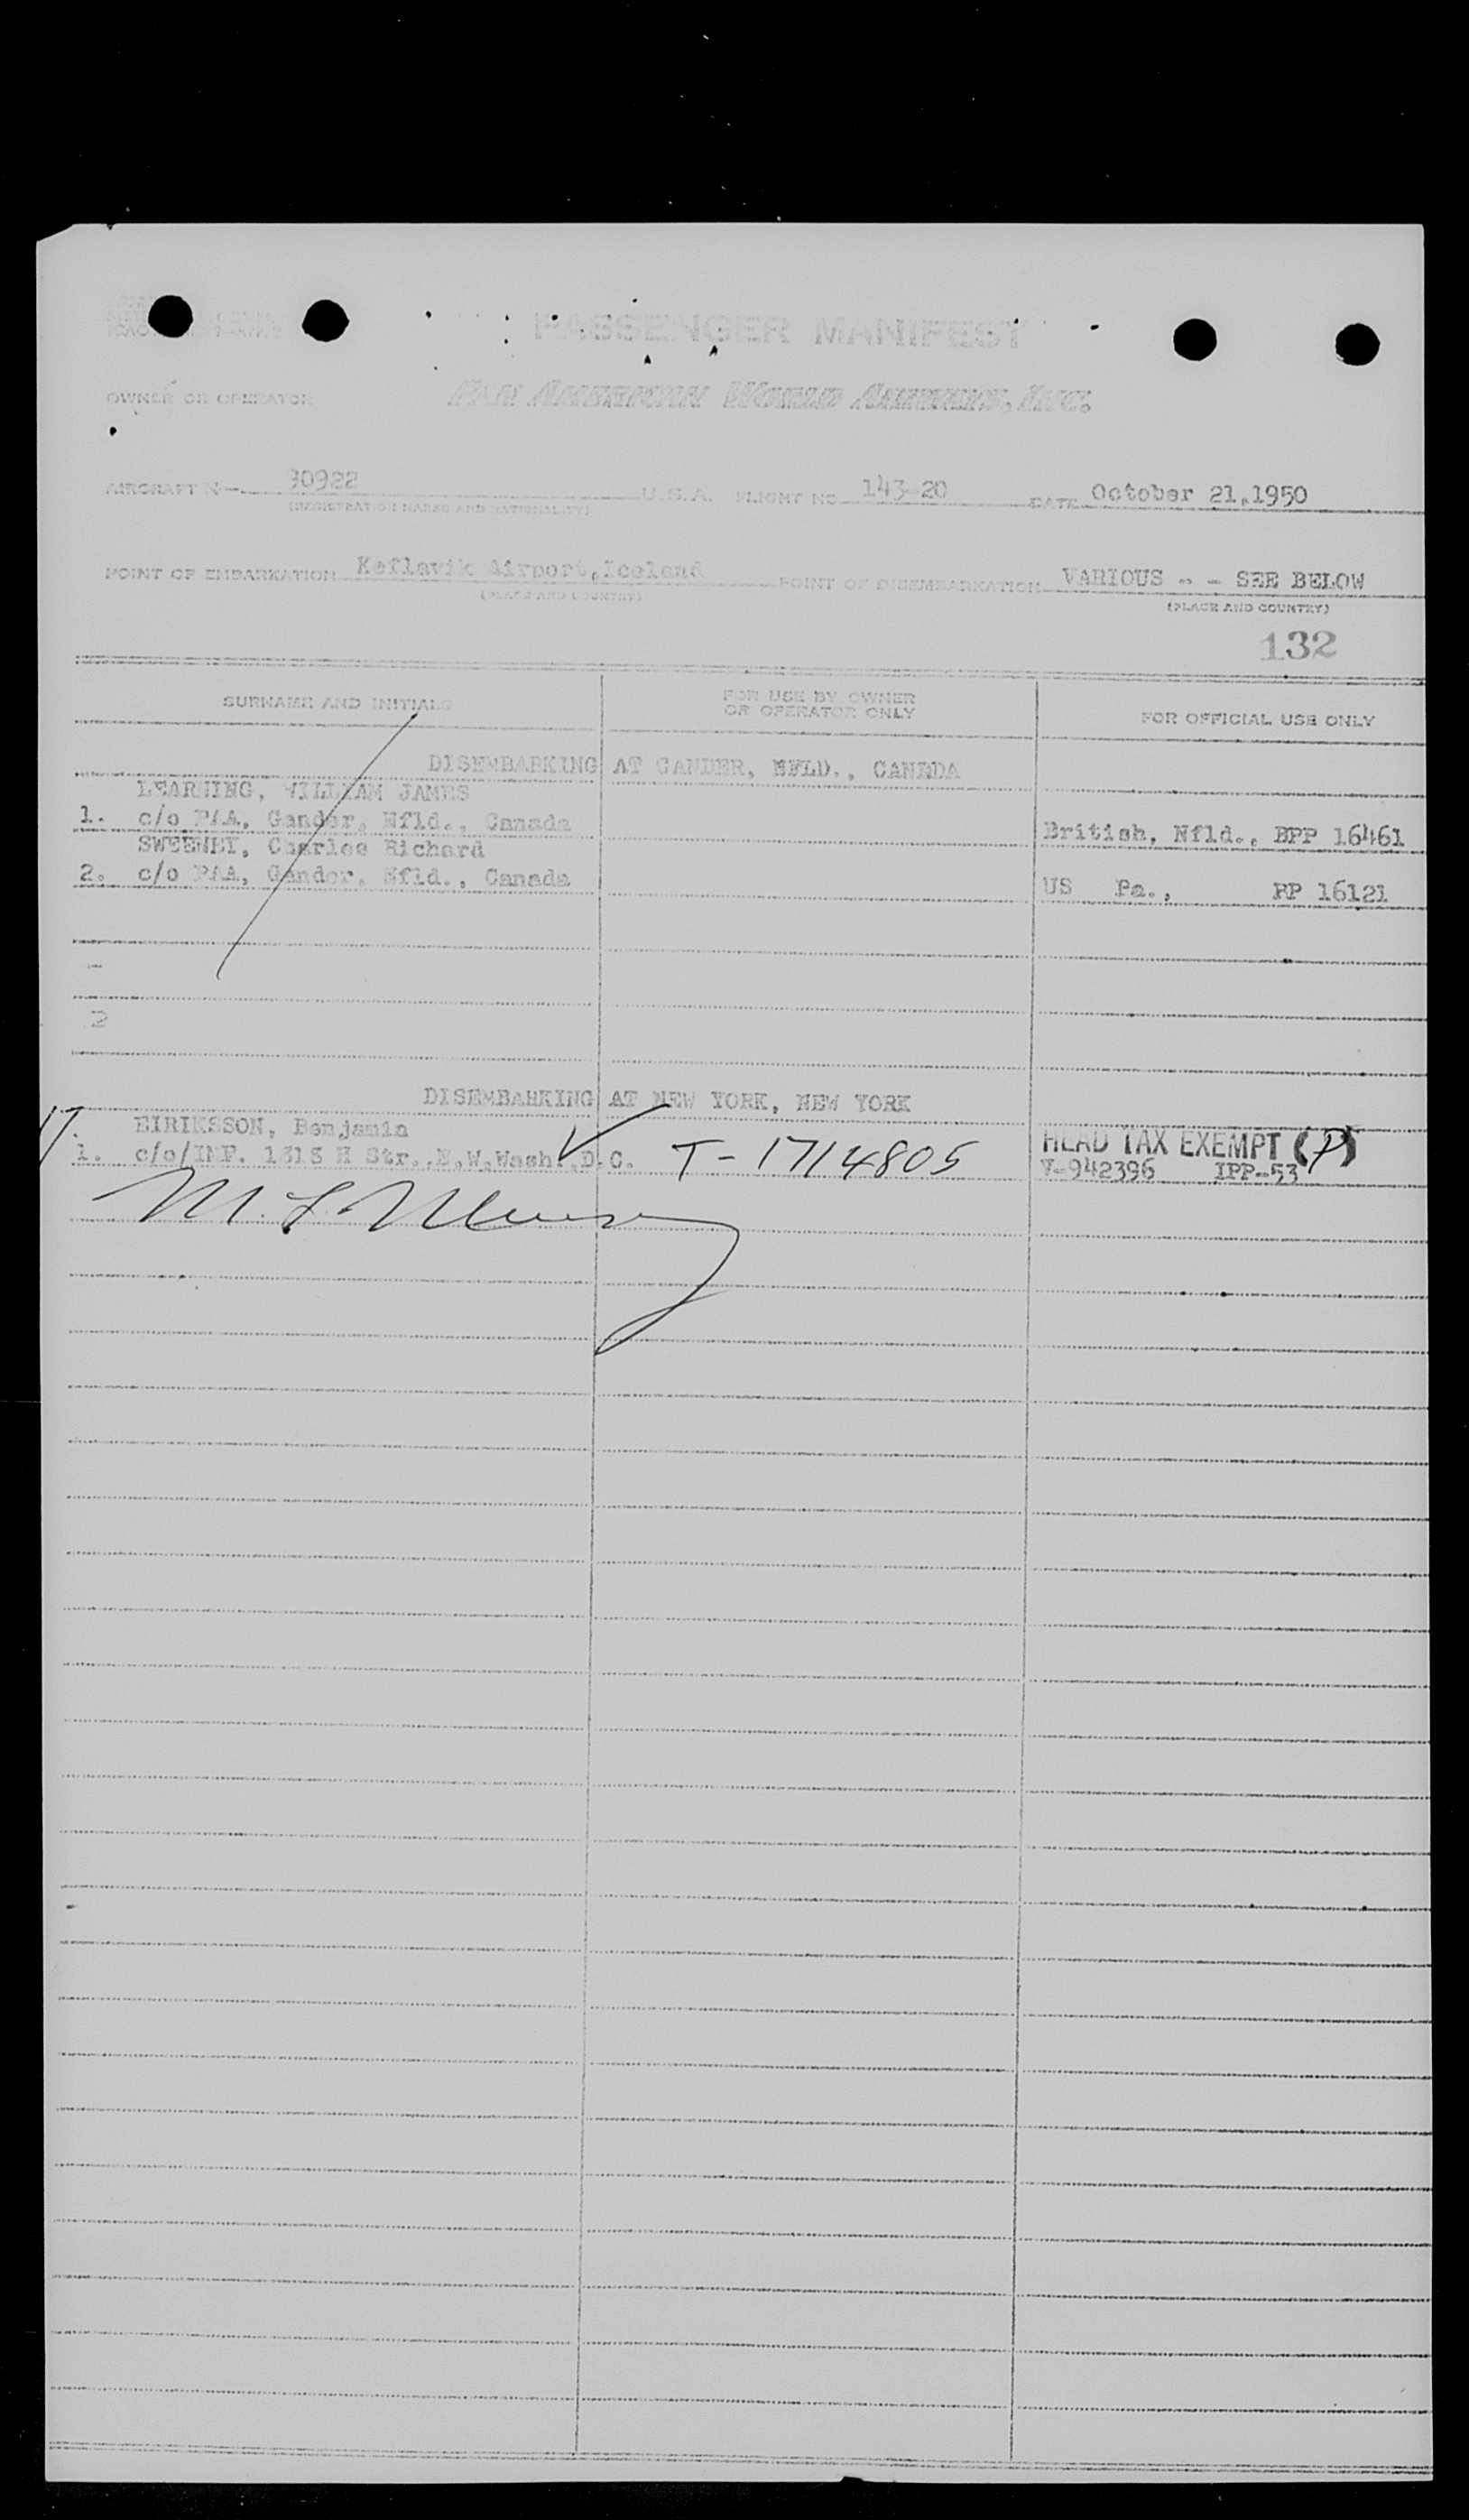 PASSENGER MANIFEST
OWNER OR OPERATOR PAN AMERICAN WORLD AIRWAYS, INC.
AIRCRAFT N- 90922 U.S.A. FLIGHT NO. 143-20 DATE October 21,1950
(REGISTRATION MARKS AND NATIONALITY)
POINT OF EMBARKATION Keflavik Airport,Iceland POINT OF DISEMBARKATION VARIOUS - - SEE BELOW
(PLACE AND COUNTRY) (PLACE AND COUNTRY)
132
SURNAME AND INITIALS FOR USE BY OWNER OR OPERATOR ONLY FOR OFFICIAL USE ONLY
DISEMBARKING AT GANDER, NFLD., CANADA
LEARNING, WILLIAM JAMES
1. c/o PAA, Gander, Nfld., Canada British, Nfld., BPP 16461
SWEENEY, Charles Richard
2. c/o PAA, Gander, Nfld., Canada US Pa., PP 16121
2
DISEMBARKING AT NEW YORK, NEW YORK
EIRIKSSON, Benjamin HEAD TAX EXEMPT (P)
1. c/o/IMF. 1818 H Str.,N.W.Wash.,D.C. T-1714805 V-942396 IPP-53